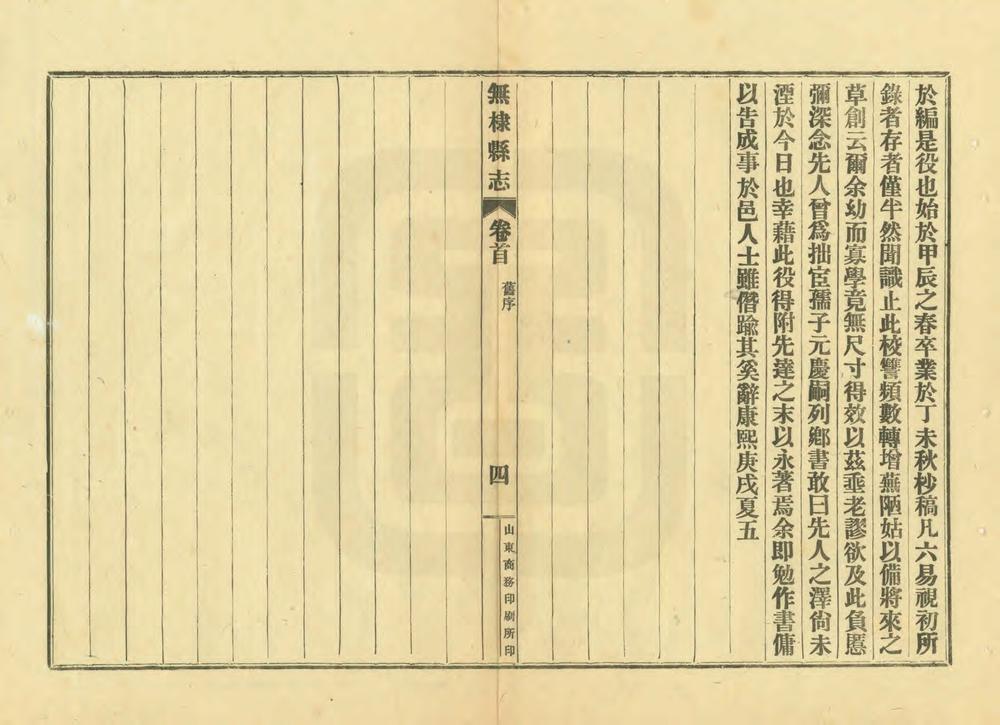 於編是役也始於甲辰之春卒業於丁未秋杪稿凡六易視初所
錄者存者僅半然聞識止此校讐頻數轉增蕪陋姑以備將來之
草創云爾余幼而寡學竟無尺寸得效以茲垂老謬欲及此負慝
彌深念先人曾爲拙宦孺子元慶嗣列鄉書敢曰先人之澤尙未
湮於今日也幸藉此役得附先達之末以永著焉余即勉作書傭
以告成事於邑人士雖僭踰其奚辭康熙庚戌夏五
無棣縣志
卷首
舊序
四
山東商務印刷所印